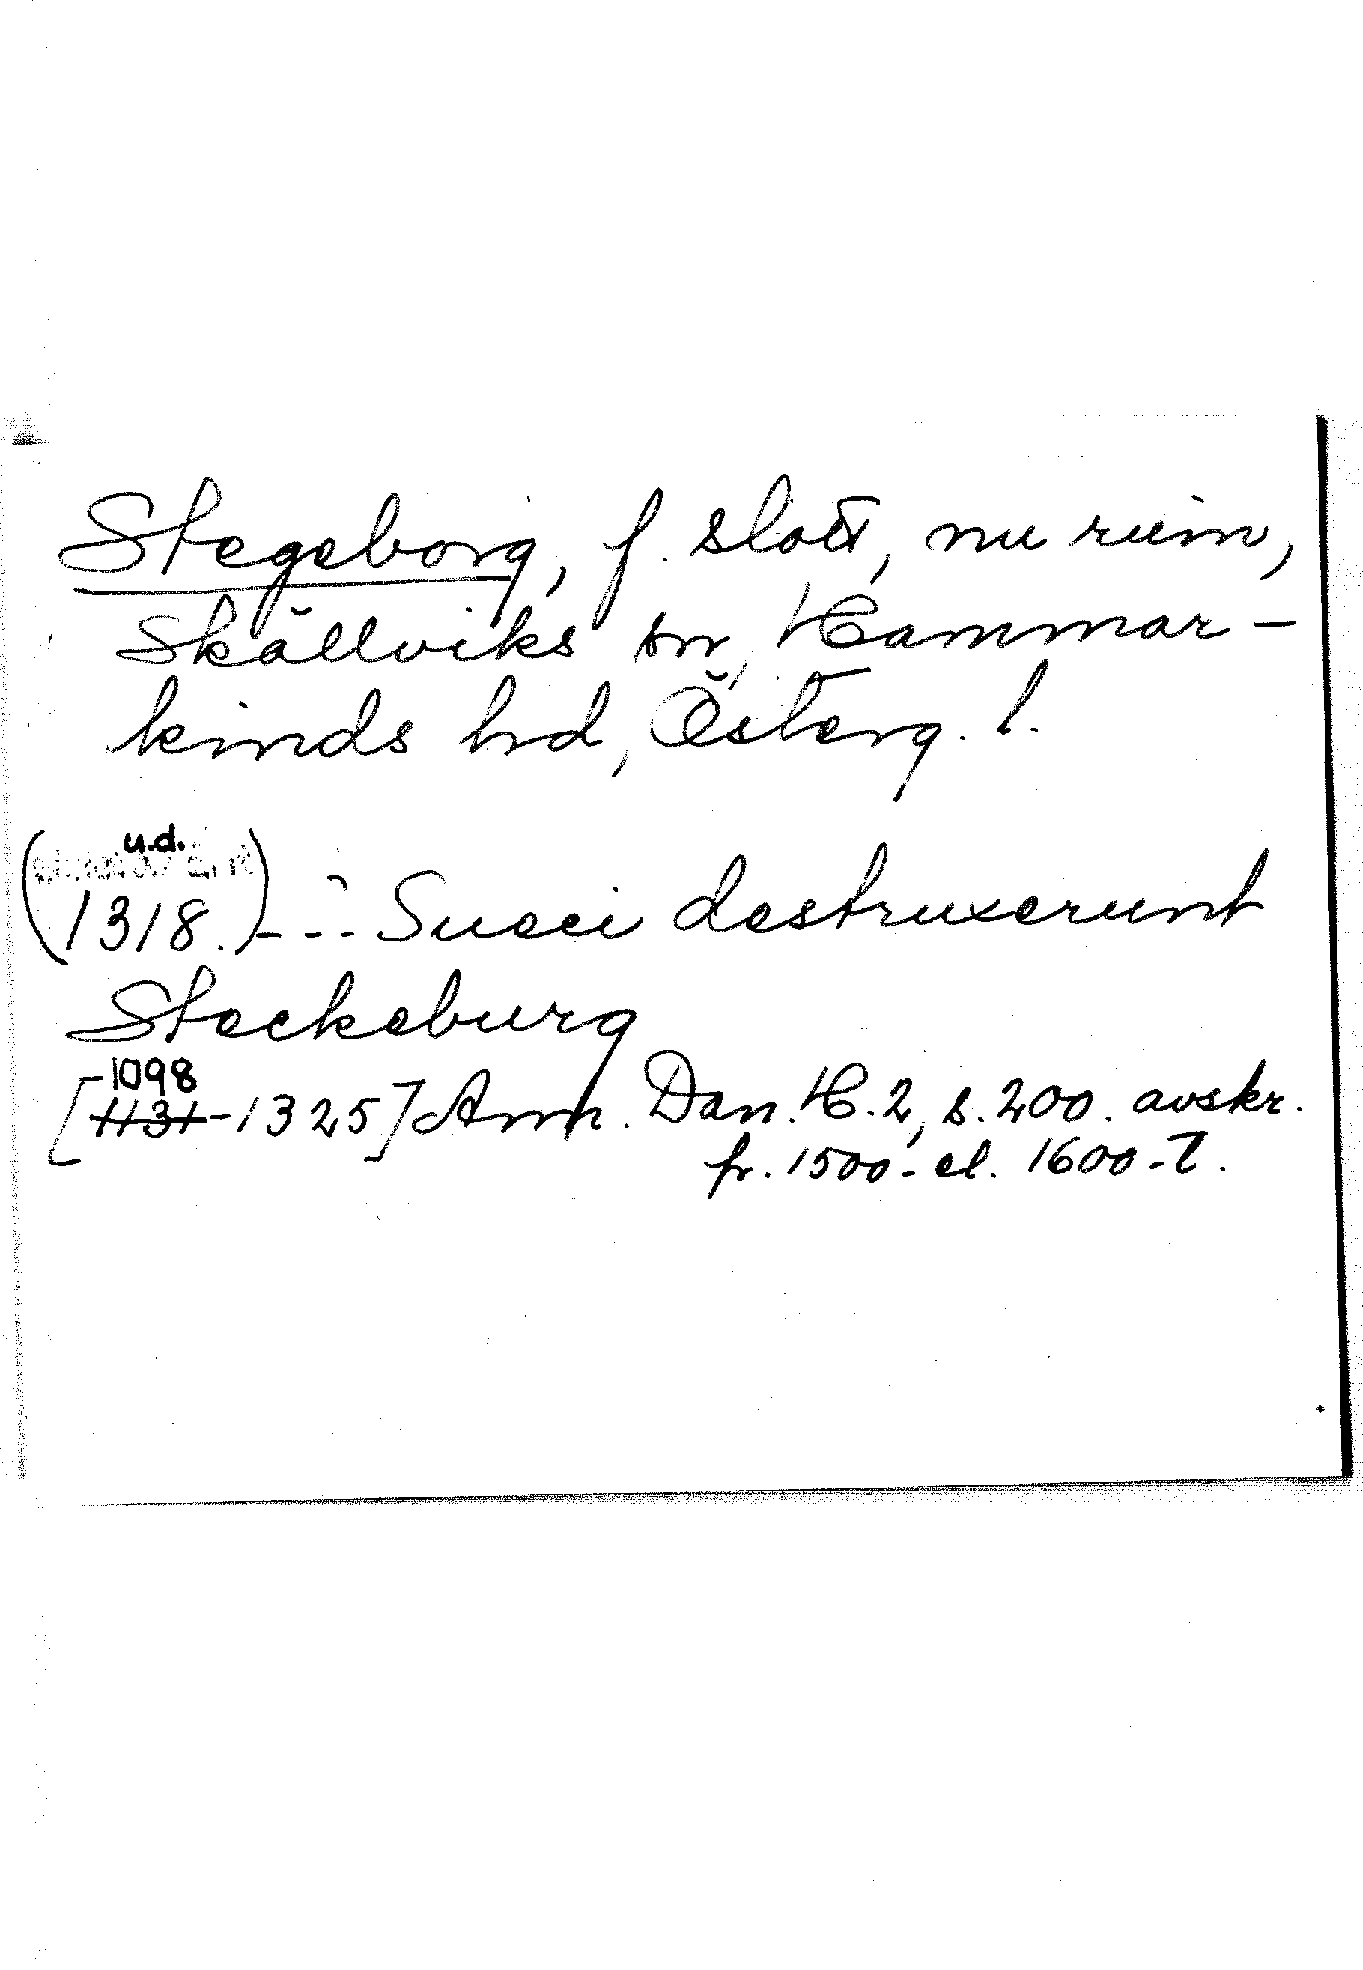 Stegeborg, f. slott, nu ruin,
Skällviks sn, Hammar-
kinds hd, Österg. l.
u.d.
(1318.) --- Sueci destruxerunt
Steckeburg
-1098
[1131-1325] Ann. Dan. H. 2, s. 200. avskr.
fr. 1500- el. 1600-t.